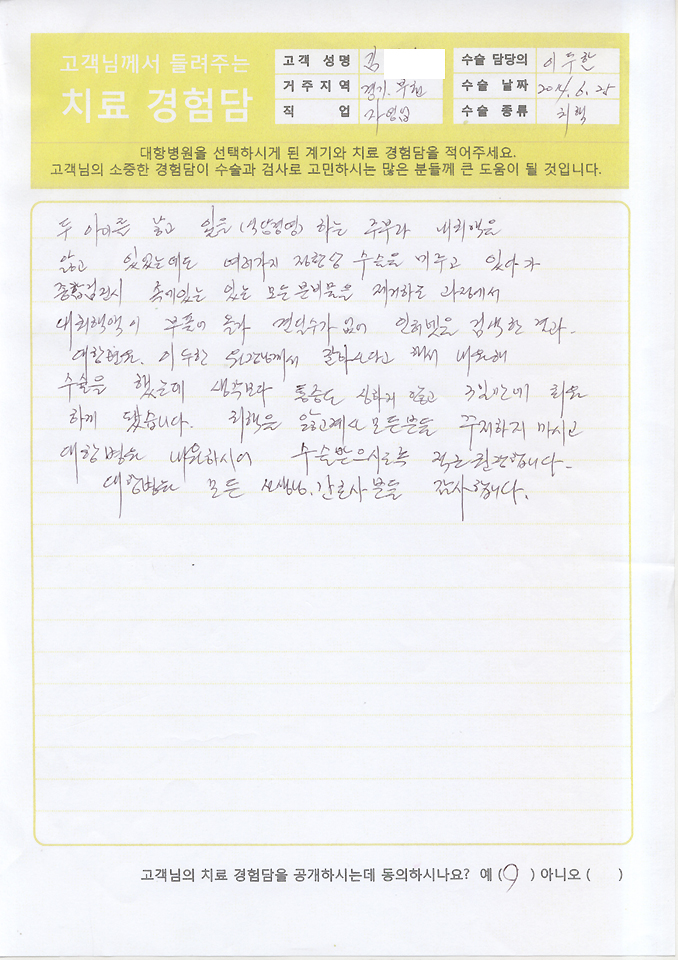 고객님께서 들려주는
치료 경험담
고객 성명 김
거주지역 경기.부천
직 업 자영업
수술 담당의 이두한
수술 날짜 2014.6.25
수술 종류 치핵
대항병원을 선택하시게 된 계기와 치료 경험담을 적어주세요.
고객님의 소중한 경험담이 수술과 검사로 고민하시는 많은 분들께 큰 도움이 될 것입니다.
두 아이를 낳고 일을(식당경영) 하는 주부라 내치핵을
앓고 있었는데도 여러가지 정한상 수술을 미루고 있다가
종합검진시 속에있는 있는 모든분비물을 제거하는 과정에서
내치핵이 부풀어 올라 견딜수가 없어 인터넷을 검색한 결과.
대항병원. 이두한 원장님께서 잘하신다고 해서 내원해
수술을 했는데 생각보다 통증도 심하지 않고 3일만에 퇴원
하게 됐습니다. 치핵을 앓고계신 모든분들 주저하지 마시고
대항병원 내원하시어 수술받으시도록 적극권장합니다.
대항병원 모든 선생님.간호사분들 감사합니다.
고객님의 치료 경험담을 공개하시는데 동의하시나요? 예 (O) 아니오 ( )